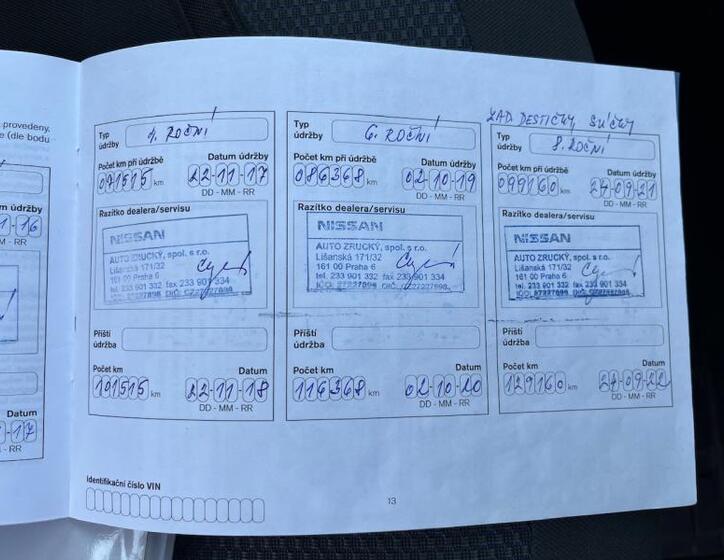 provedeny.
e (dle bodu
m údržby
1-16
M - RR
Datum
-17
M - RR
Typ
údržby
4. ROČNÍ
Počet km při údržbě
Datum údržby
071515 km
22-11-17
DD - MM - RR
Razítko dealera/servisu
NISSAN
AUTO ZRUCKÝ, spol. s r.o.
Lišanská 171/32
161 00 Praha 6
tel. 233 901 332 fax 233 901 334
Příští
údržba
Počet km
Datum
101515 km
22-11-18
DD - MM - RR
Typ
údržby
6. ROČNÍ
Počet km při údržbě
Datum údržby
086368 km
02-10-19
DD - MM - RR
Razítko dealera/servisu
NISSAN
AUTO ZRUCKÝ, spol. s r.o.
Lišanská 171/32
161 00 Praha 6
tel. 233 901 332 fax 233 901 334
Příští
údržba
Počet km
Datum
116368 km
02-10-20
DD - MM - RR
ZAD DESTIČKY, SVÍČKY
Typ
údržby
8. ROČNÍ
Počet km při údržbě
Datum údržby
099160 km
24-09-21
DD - MM - RR
Razítko dealera/servisu
NISSAN
AUTO ZRUCKÝ, spol. s r.o.
Lišanská 171/32
161 00 Praha 6
tel. 233 901 332 fax 233 901 334
Příští
údržba
Počet km
Datum
129160 km
24-09-22
DD - MM - RR
Identifikační číslo VIN
13